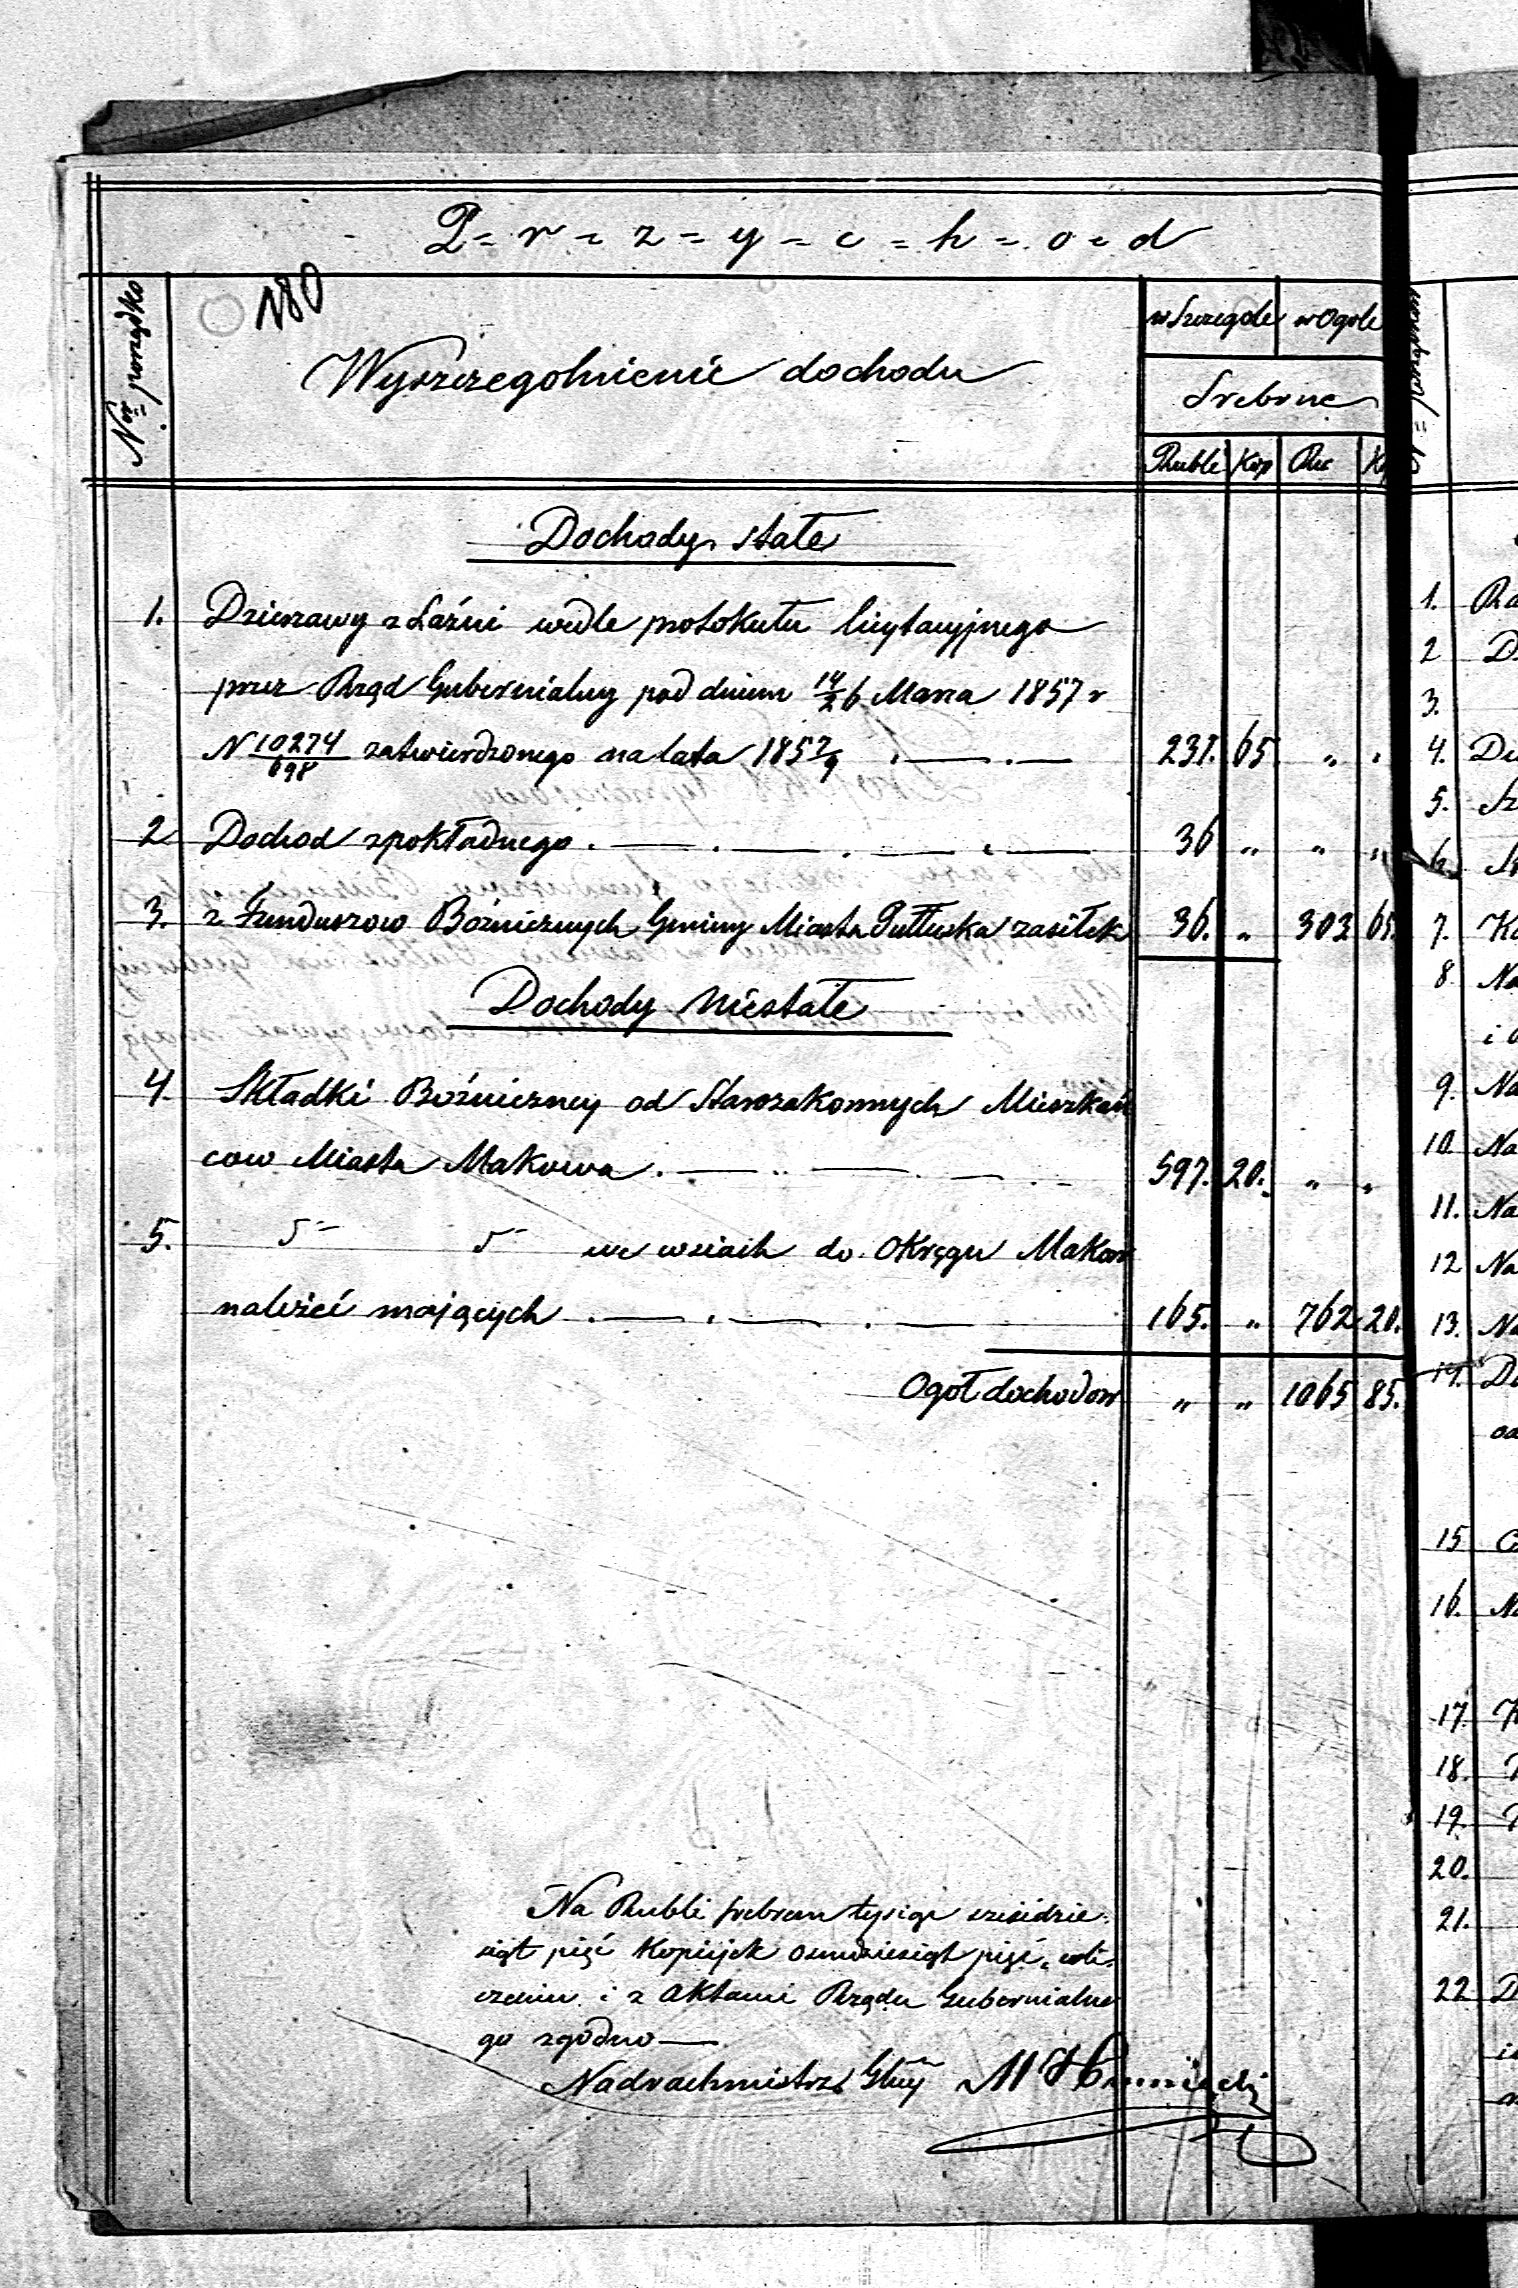 P = r = z = y = c = h = o = d
180
Nr porządko
Wyszczegolnienie dochodu
w Szczegole w Ogole
Srebrne
Ruble Kop Rs K
Dochody stałe
1. Dzierzawy z Łaźni wedle protokułu licytacyjnego
przez Rząd Gubernialny pod dniem 14/26 Marca 1857 r
N 10274/698 zatwierdzonego na lata 1857/9 231. 65. " "
2 Dochod z pokładnego 36 " " "
3. z Funduszow Bóźnicznych Gminy Miasta Pułtuska zasiłek 36. " 303 65.
Dochody niestałe
4. Składki Bożniczney od Starozakonnych Mieszkań
cow Miasta Makowa 597. 20. " "
5. we wsiach do Okręgu Makow
należeć mających 165. " 762 20.
Ogoł dochodow " " 1065 85.
Na Rubli srebrem tysiąc sześćdzie
siąt pięć Kopiejek osmdziesiąt pięć, obli
czenie i z Aktami Rządu Gubernialne
go zgodno
Nadrachmistrz Gbny M
1. Ra
2 Dz
3.
4. Du
5. Sz
6.
7. Ko
8 Na
i o
9. Na
10. Na
11. Na
12 Na
13. Na
14. Do
od
15
16. Na
17.
18.
19.
20.
21.
22 D